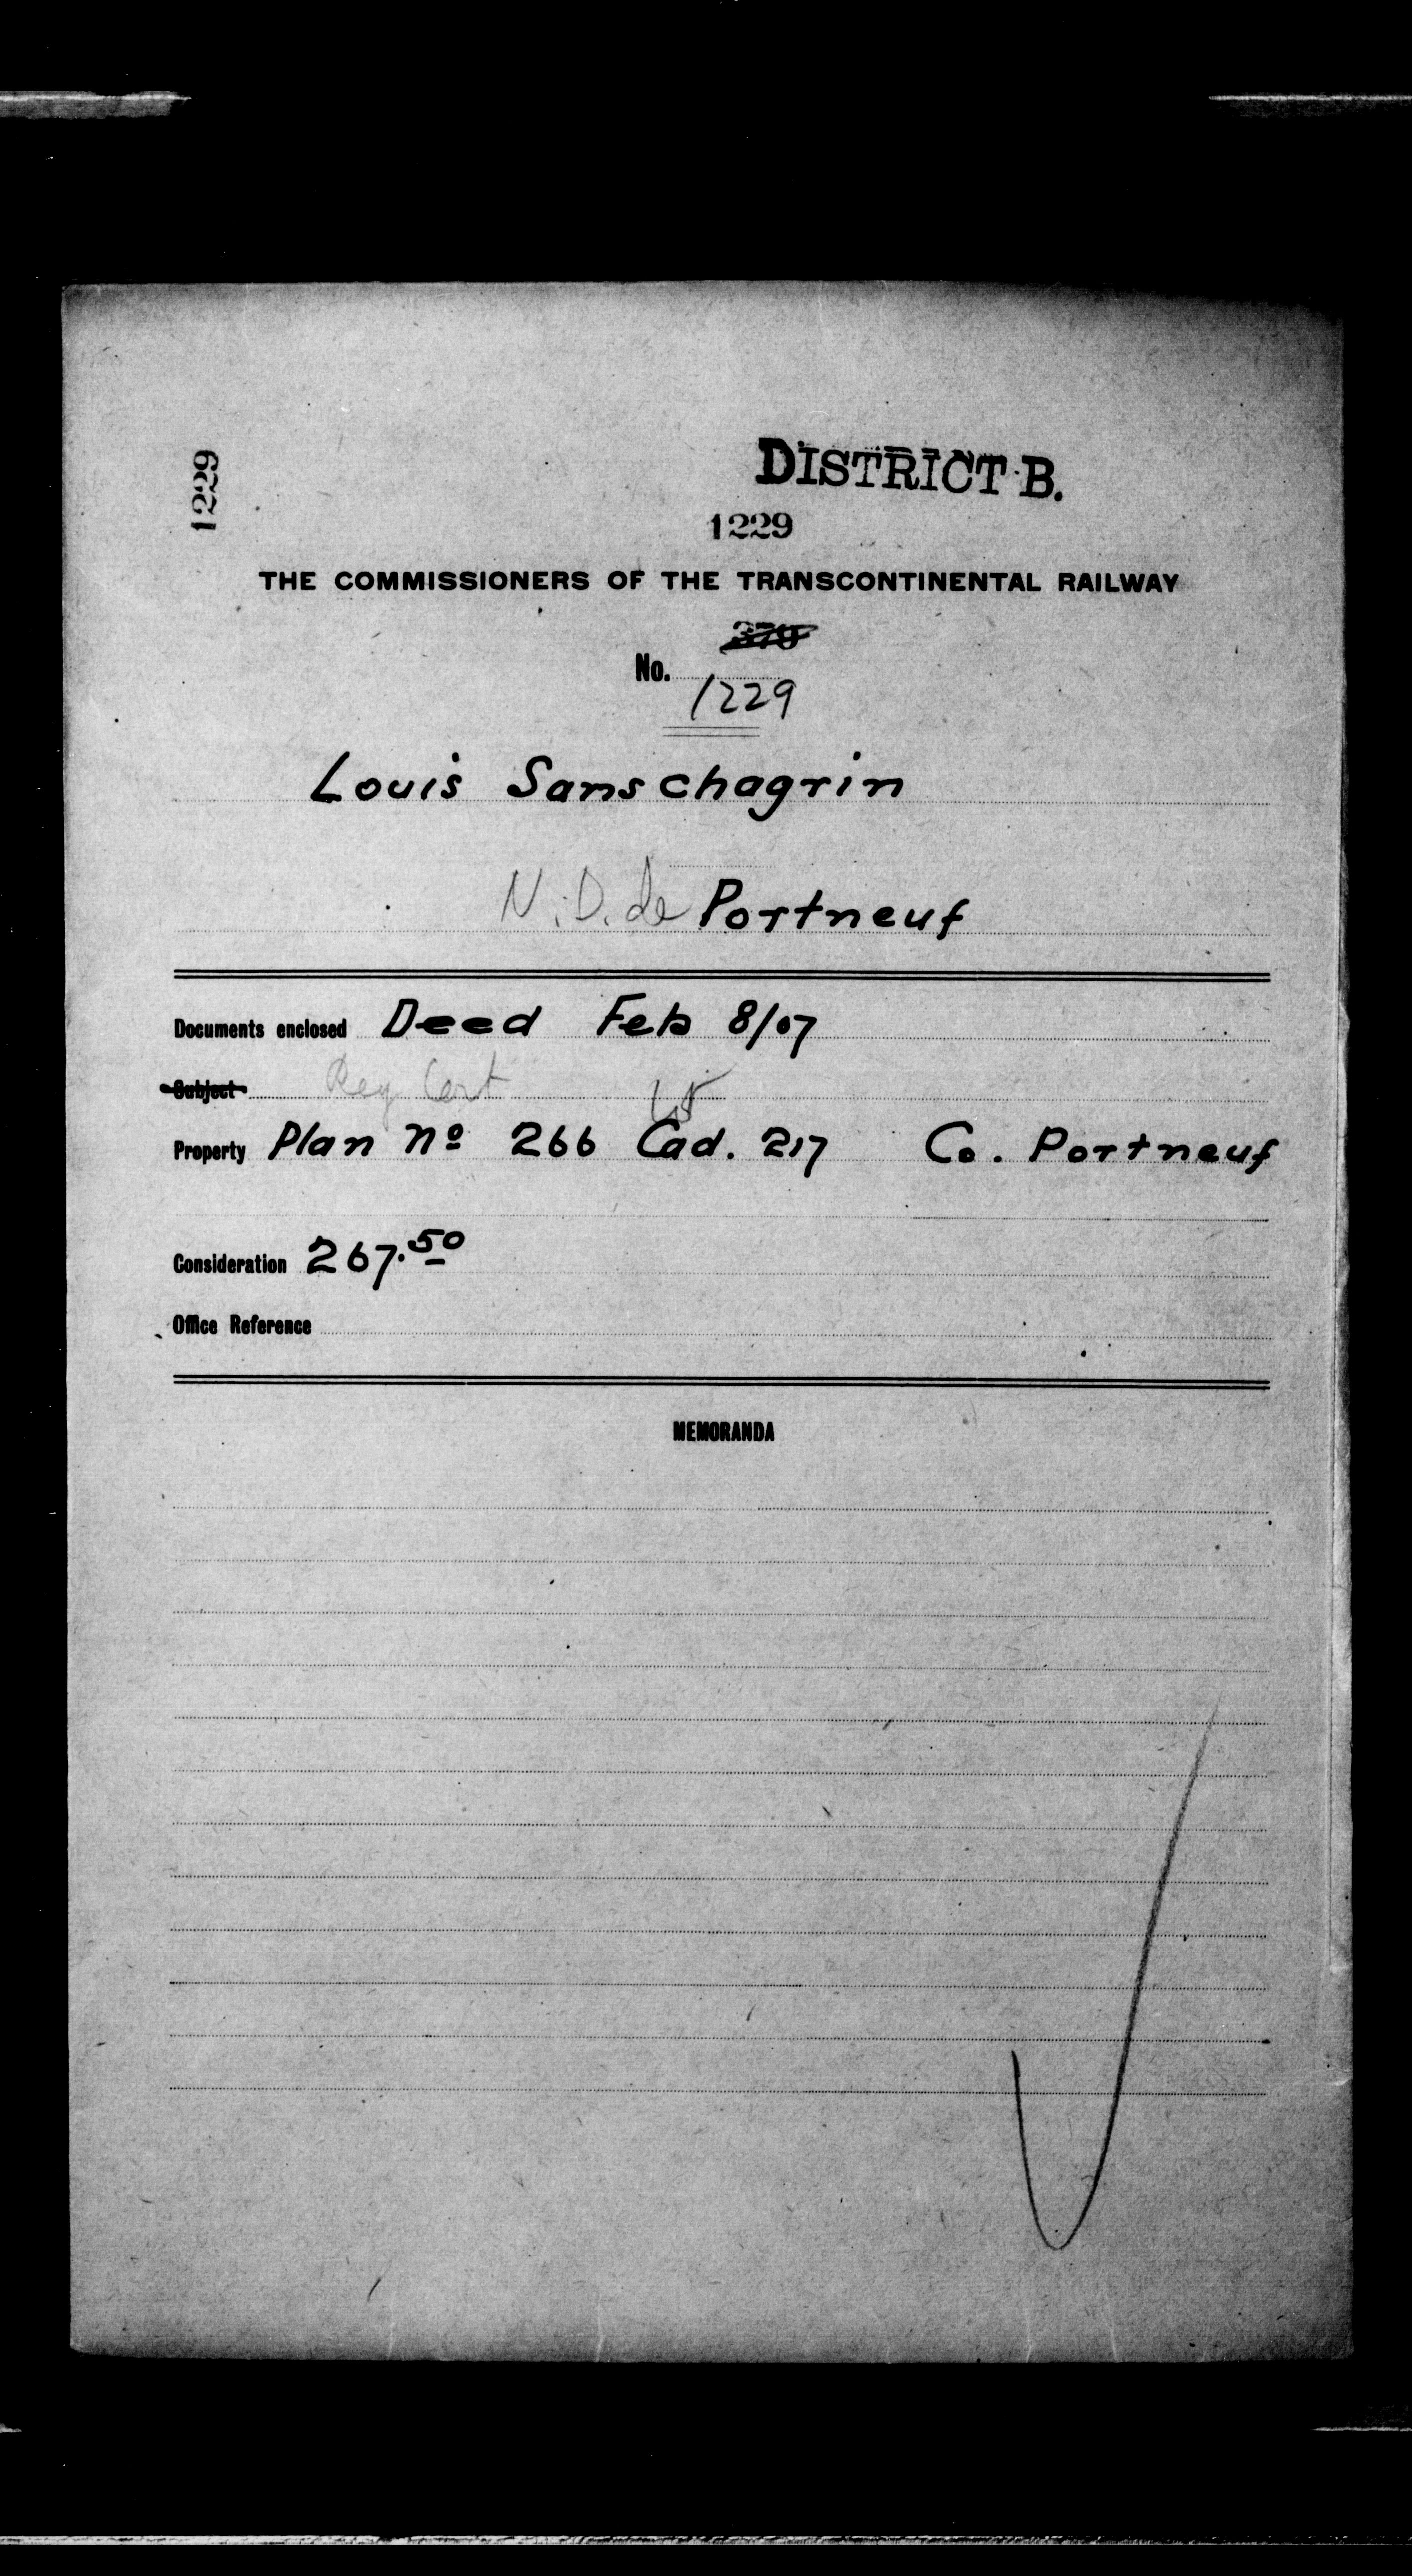 1229
DISTRICT B.
1229
THE COMMISSIONERS OF THE TRANSCONTINENTAL RAILWAY
No.
1229
Louis Sanschagrin
N.D. de Portneuf
Documents enclosed Deed Feb 8/07
Subject Reg Cert
Property Plan No 266 Cad. 217 Co. Portneuf
Consideration 267.50
Office Reference
MEMORANDA